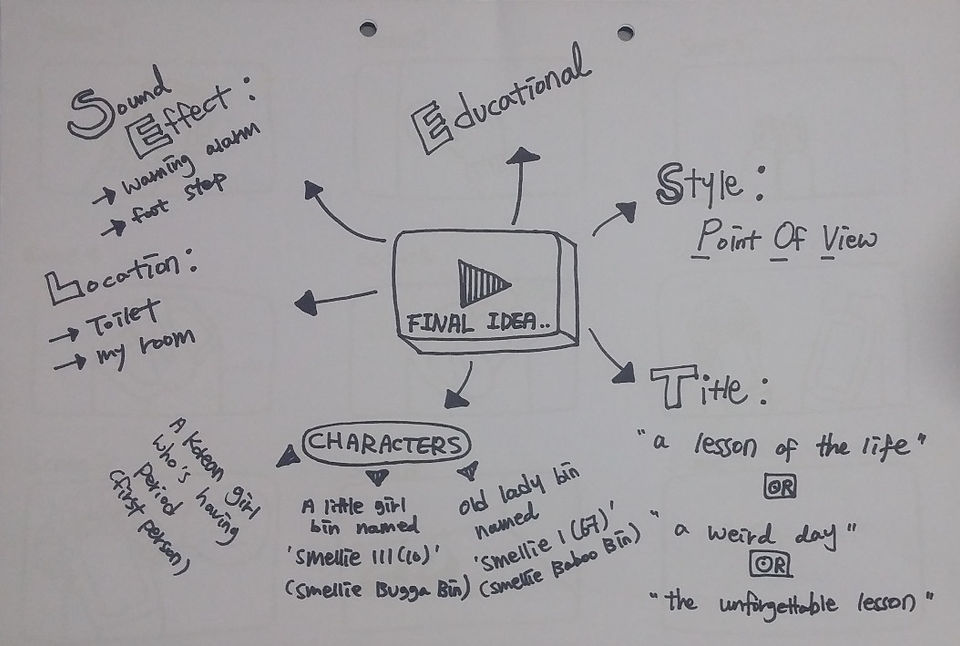 Sound
Effect:
→ warning alarm
→ foot step
Educational
Style:
Point Of View
Location:
→ Toilet
→ my room
FINAL IDEA..
Title:
"a lesson of the life"
OR
"a weird day"
OR
"the unforgettable lesson"
CHARACTERS
A Korean girl
who's having
period
(first person)
A little girl
bin named
'Smellie III(10)'
(Smellie Bugga Bin)
old lady bin
named
'Smellie I (67)'
(Smellie Baboo Bin)